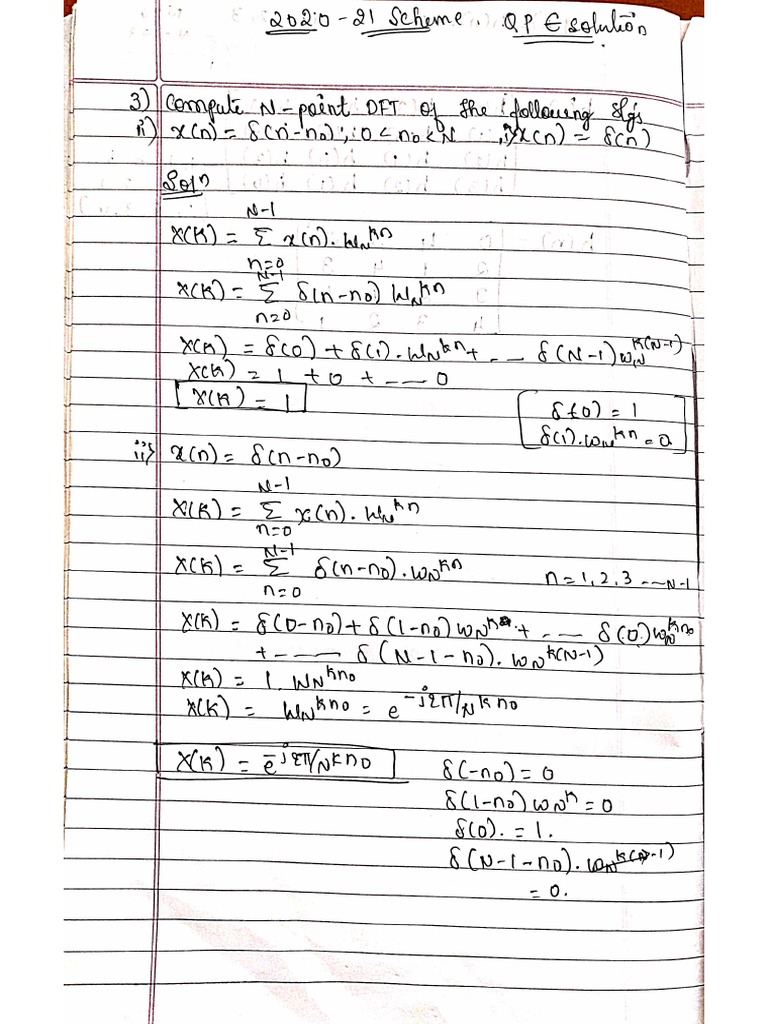 2020-21 Scheme. QP & Solution.
3) Compute N-point DFT of the following sigs
ii) x(n) = δ(n-n₀); 0<n₀<N , i) x(n) = δ(n)
Soln
N-1
X(K) = Σ x(n). W_N^kn
n=0
N-1
X(K) = Σ δ(n-n₀) W_N^kn
n=0
X(K) = δ(0) + δ(1). W_N^kn + --- δ(N-1) W_N^K(N-1)
X(K) = 1 + 0 + --- 0
X(K) = 1
δ(0) = 1
δ(1). W_N^kn = 0
ii) x(n) = δ(n-n₀)
N-1
X(K) = Σ x(n). W_N^kn
n=0
N-1
X(K) = Σ δ(n-n₀). W_N^kn n = 1, 2, 3 --- N-1
n=0
X(K) = δ(0-n₀) + δ(1-n₀) W_N^k + --- δ(0) W_N^kn₀
+ --- δ(N-1-n₀). W_N^k(N-1)
X(K) = 1. W_N^kn₀
X(K) = W_N^kn₀ = e^-j2π/N kn₀
X(K) = e^-j2π/N kn₀
δ(-n₀) = 0
δ(1-n₀) W_N^k = 0
δ(0). = 1.
δ(N-1-n₀). W_N^k(N-1)
= 0.